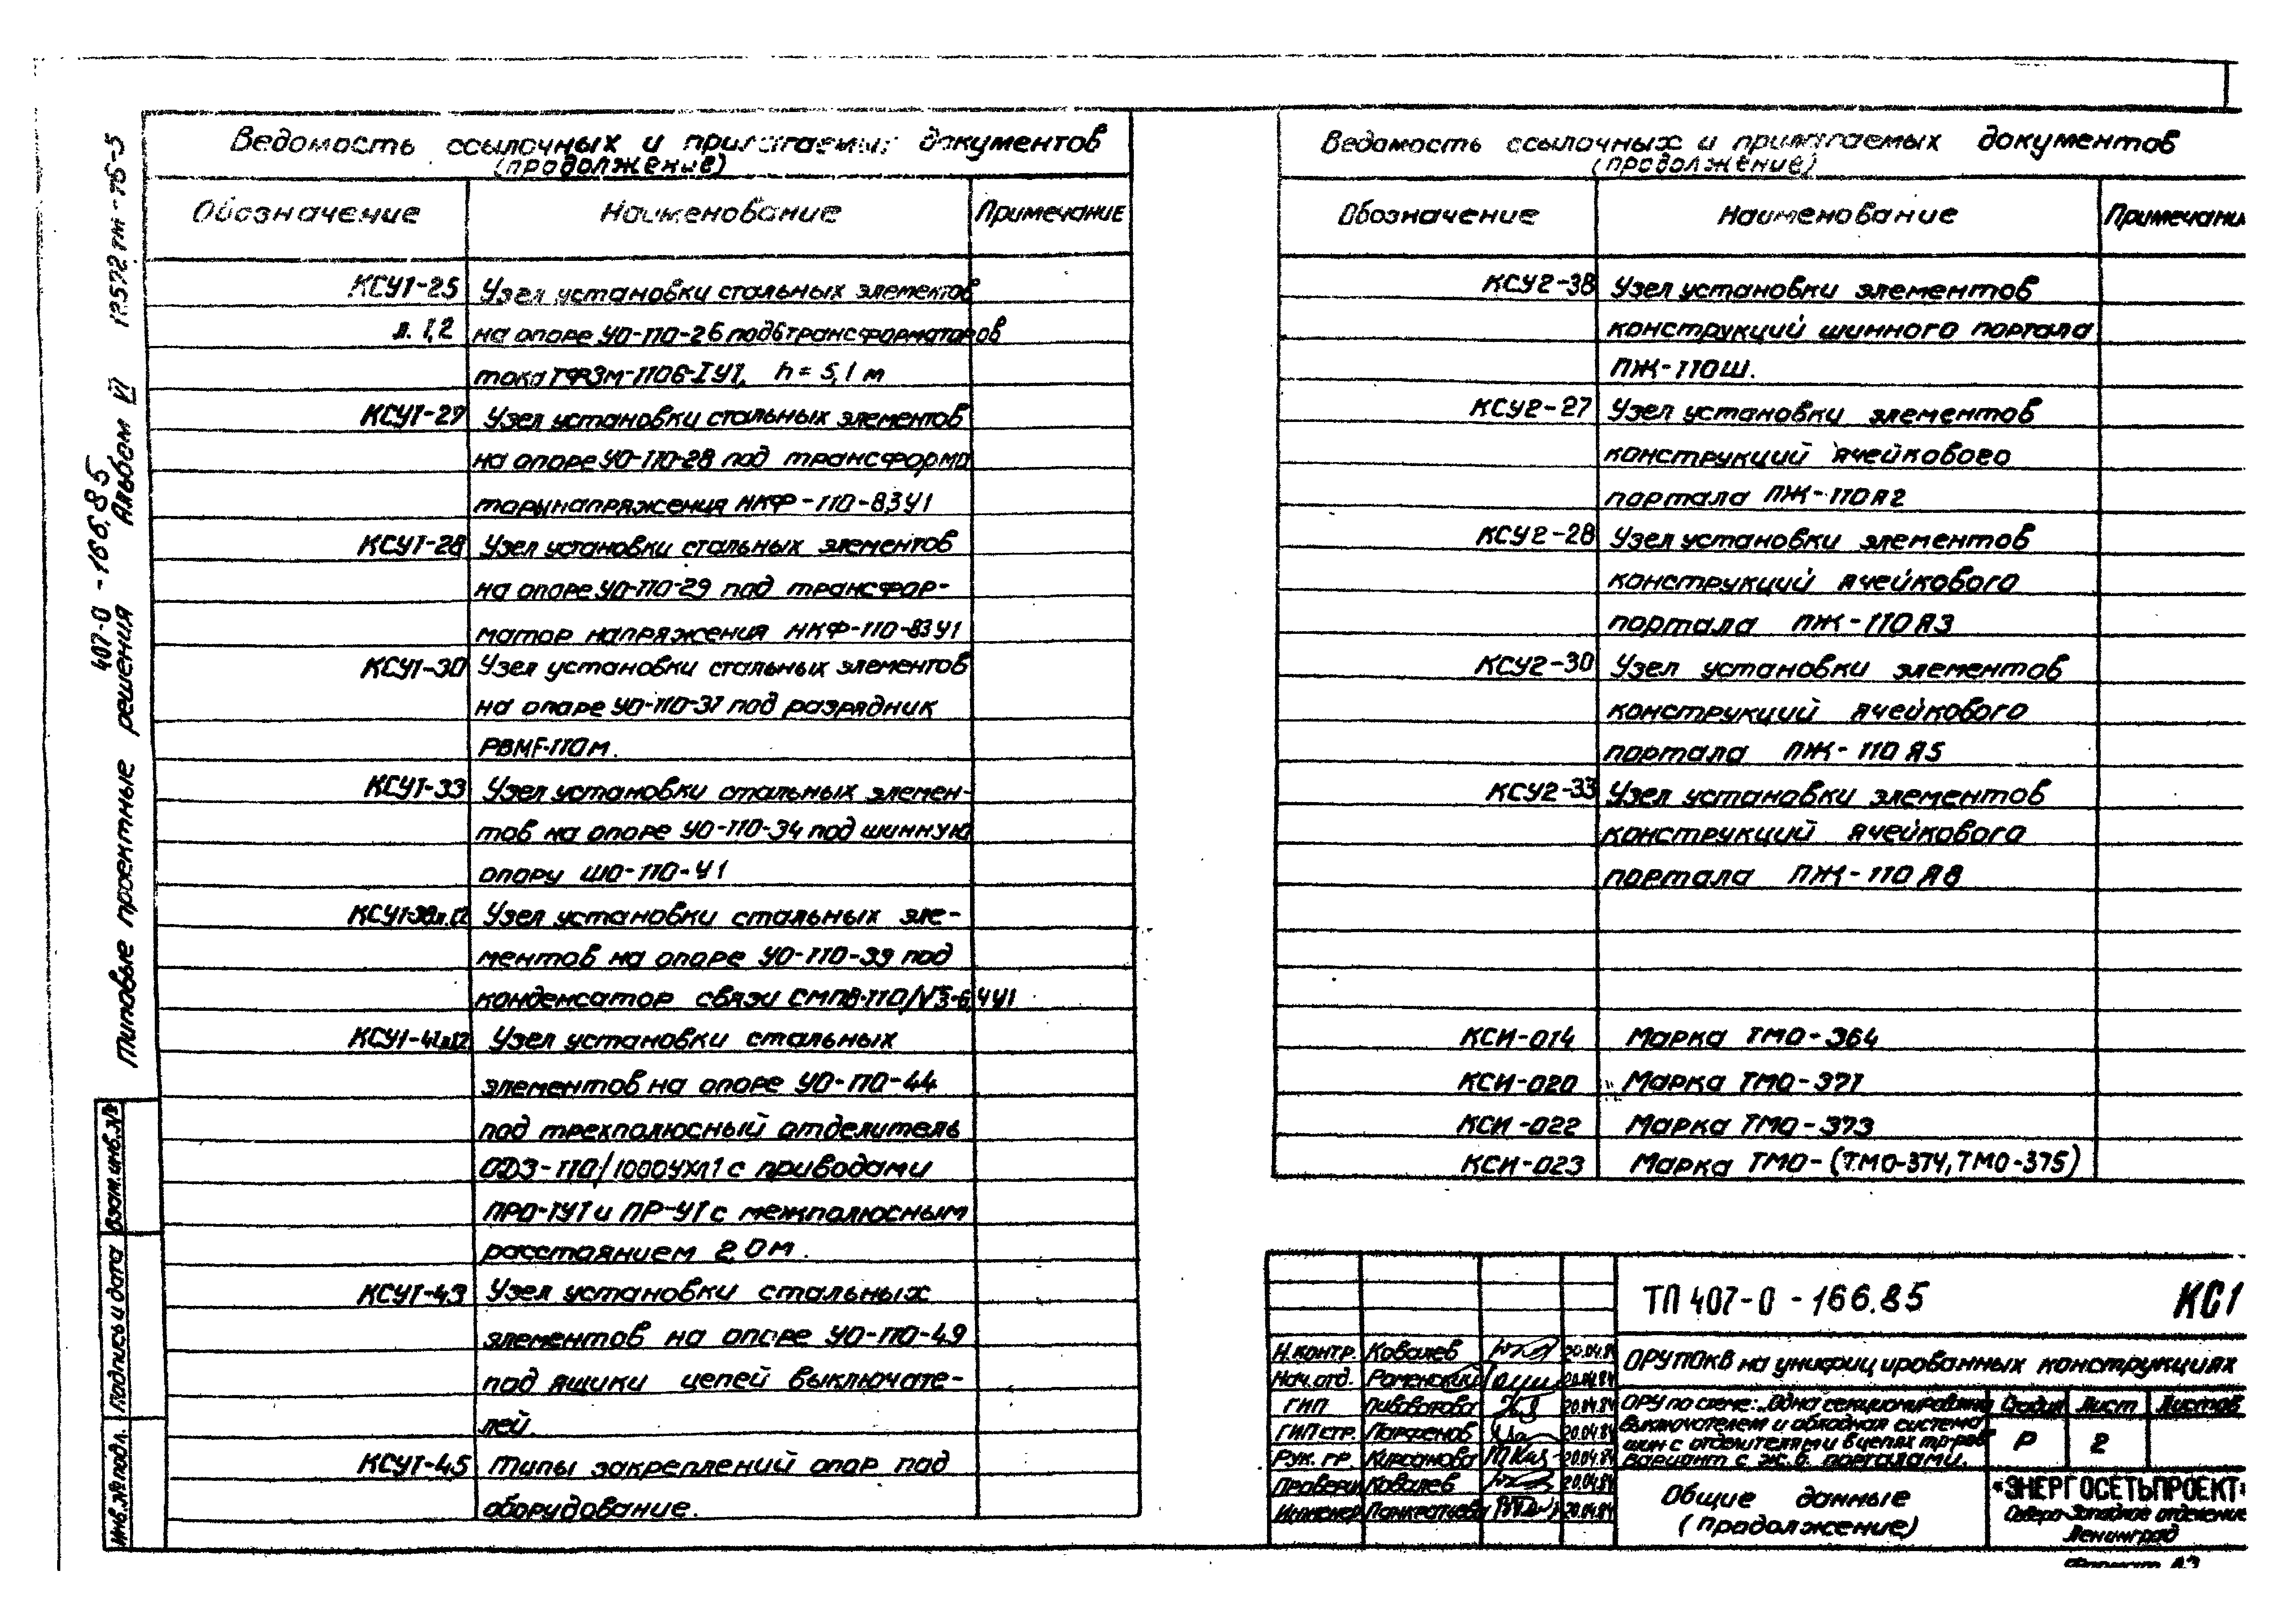 Ведомость ссылочных и прилагаемых документов
(продолжение)
Обозначение Наименование Примечание
КСУ1-25 Узел установки стальных элементов
л. 1,2 на опоре УО-110-26 под 6 трансформаторов
тока ТФЗМ-110Б-IУ1, h = 5,1 м
КСУ1-27 Узел установки стальных элементов
на опоре УО-110-28 под трансформа
торы напряжения НКФ-110-83У1
КСУ1-28 Узел установки стальных элементов
на опоре УО-110-29 под трансфор-
матор напряжения НКФ-110-83У1
КСУ1-30 Узел установки стальных элементов
на опоре УО-110-31 под разрядник
РВМГ-110м.
КСУ1-33 Узел установки стальных элемен-
тов на опоре УО-110-34 под шинную
опору ШО-110-У1
КСУ1-38л.1,2 Узел установки стальных эле-
ментов на опоре УО-110-39 под
конденсатор связи СМПВ-110/√3-6,4У1
КСУ1-41л.1,2 Узел установки стальных
элементов на опоре УО-110-44
под трехполюсный отделитель
ОДЗ-110/1000УХЛ1 с приводами
ПРО-1У1 и ПР-У1 с межполюсным
расстоянием 2,0 м.
КСУ1-43 Узел установки стальных
элементов на опоре УО-110-49
под ящики цепей выключате-
лей.
КСУ1-45 Типы закреплений опор под
оборудование.
Ведомость ссылочных и прилагаемых документов
(продолжение)
Обозначение Наименование Примечани
КСУ2-38 Узел установки элементов
конструкций шинного портала
ПЖ-110Ш.
КСУ2-27 Узел установки элементов
конструкций ячейкового
портала ПЖ-110Я2
КСУ2-28 Узел установки элементов
конструкций ячейкового
портала ПЖ-110Я3
КСУ2-30 Узел установки элементов
конструкций ячейкового
портала ПЖ-110Я5
КСУ2-33 Узел установки элементов
конструкций ячейкового
портала ПЖ-110Я8
КСИ-014 Марка ТМО-364
КСИ-020 Марка ТМО-371
КСИ-022 Марка ТМО-373
КСИ-023 Марка ТМО-(ТМО-374, ТМО-375)
ТП 407-0-166.85 КС1
ОРУ 110кВ на унифицированных конструкциях
Н.контр. Ковалев 20.04.84
Нач.отд. Роменский 20.04.84
ГИП Пивоварова 20.04.84
ГИП стр. Парфенов 20.04.84
Рук. гр. Кирсанова 20.04.84
Проверил Ковалев 20.04.84
Инженер Панкратьева 20.04.84
ОРУ по схеме: „Одна секционирована
выключателем и обходная система
шин с отделителями в цепях тр-ров
вариант с ж.б. порталами.
Стадия Лист Листов
Р 2
Общие данные
(продолжение)
«ЭНЕРГОСЕТЬПРОЕКТ»
Северо-Западное отделение
Ленинград
Формат А3
12572тм-т5-5
407-0-166.85
Типовые проектные решения Альбом VI
Взам.инв.№
Подпись и дата
Инв.№ подл.